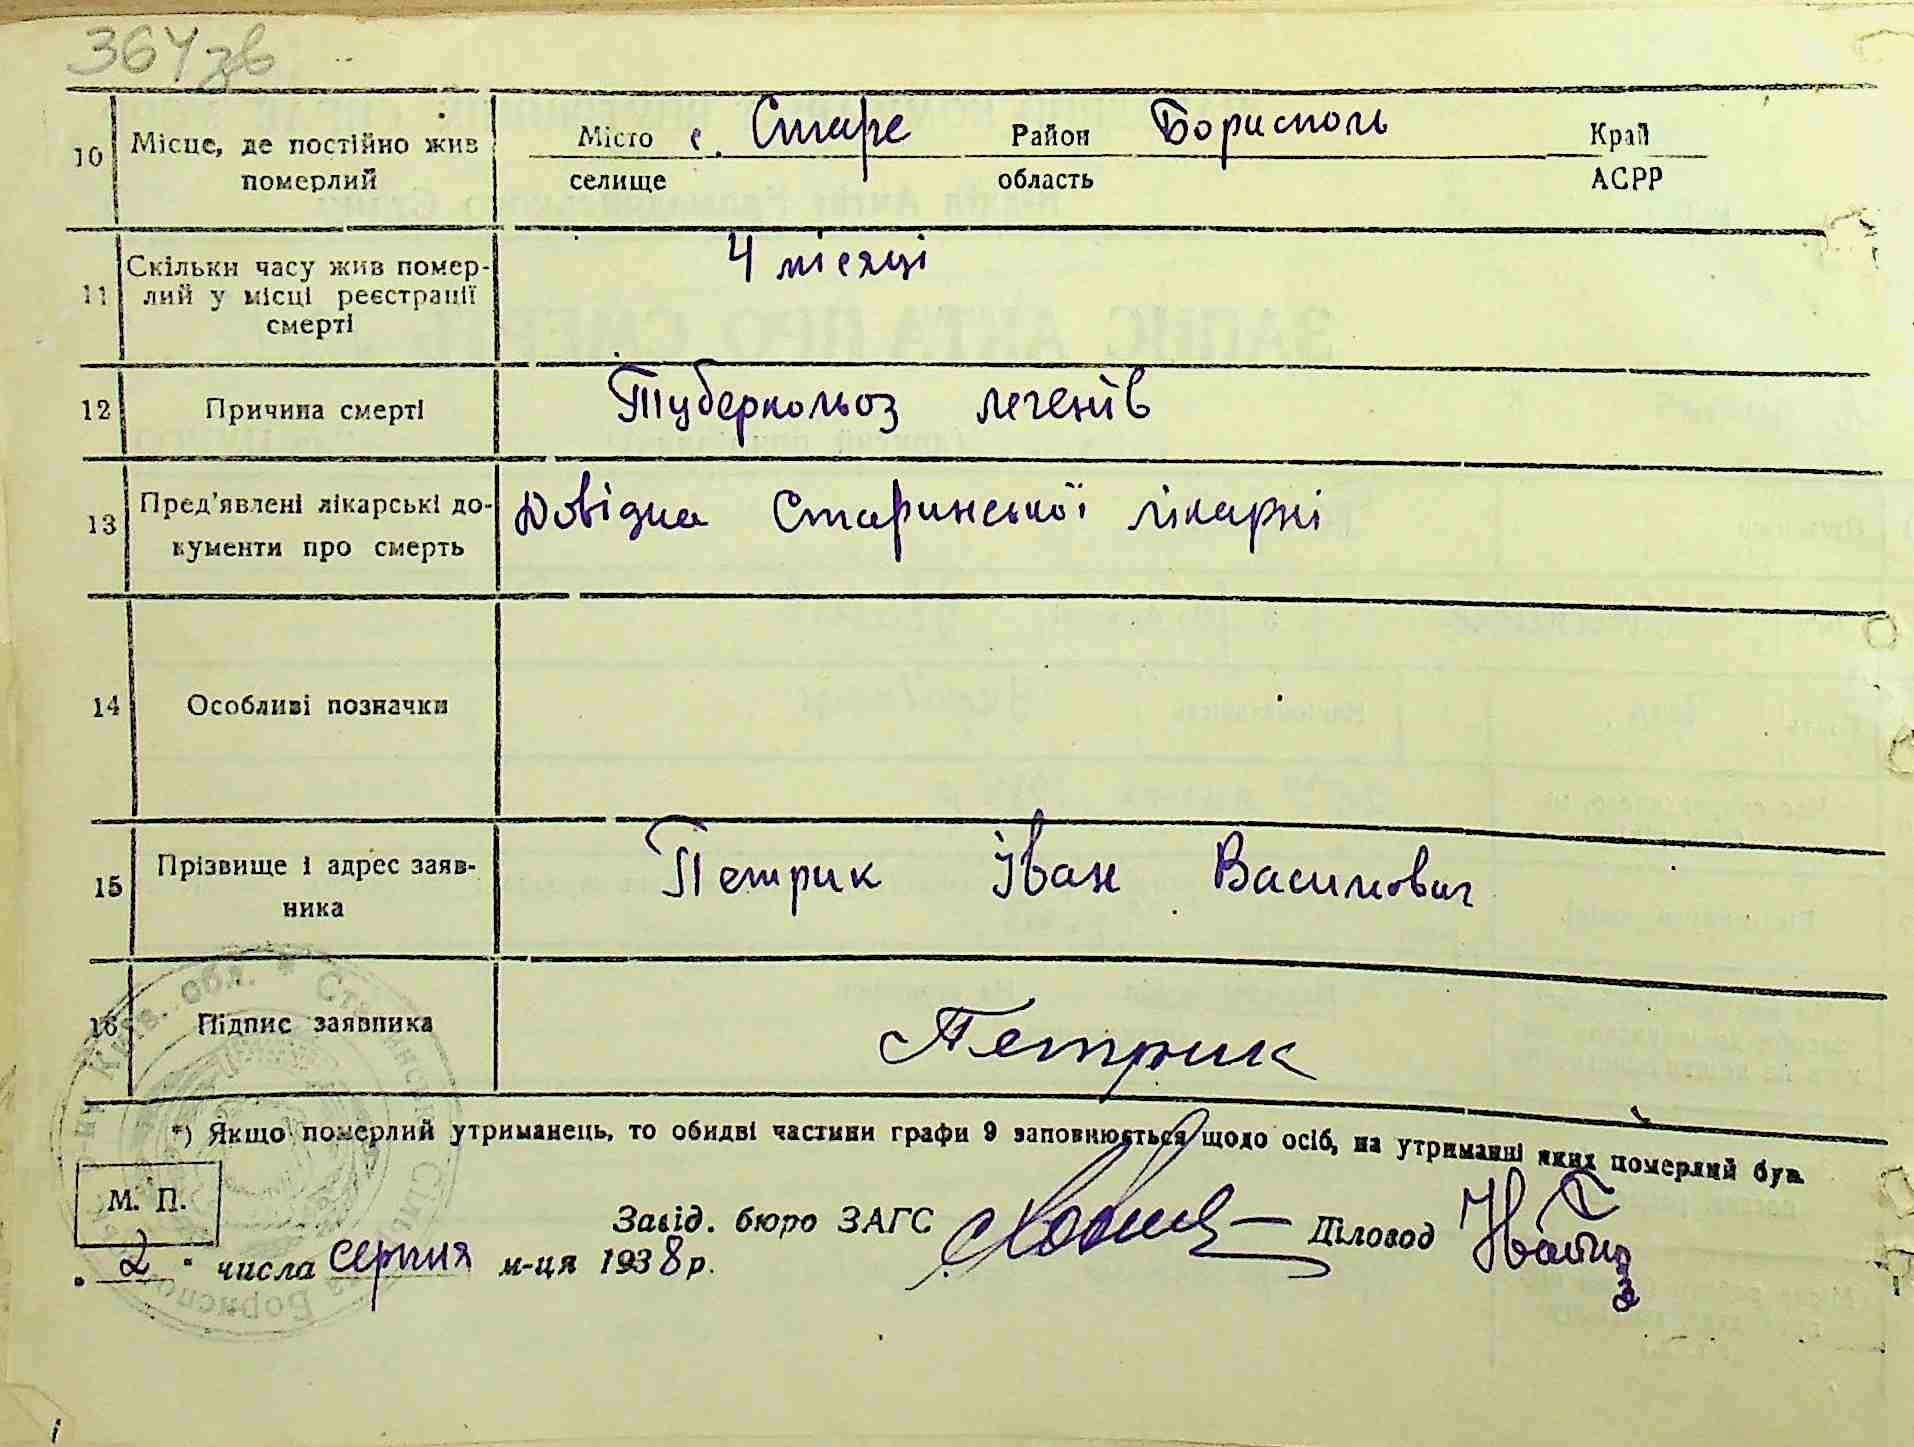 364зв
10 Місце, де постійно жив померлий
Місто с. Старе Район Борисполь Край
селище область АСРР
11 Скільки часу жив помер-
лий у місці реєстрації
смерті
4 місяці
12 Причина смерті Туберкольоз легенів
13 Пред'явлені лікарські до-
кументи про смерть
Довідка Старинської лікарні
14 Особливі позначки
15 Прізвище і адрес заяв-
ника
Петрик Іван Василович
16 Підпис заявника Петрик
*) Якщо померлий утриманець, то обидві частини графи 9 заповнюється щодо осіб, на утриманні яких померлий був.
М. П.
Завід. бюро ЗАГС Діловод
"2" числа серпня м-ця 1938 р.